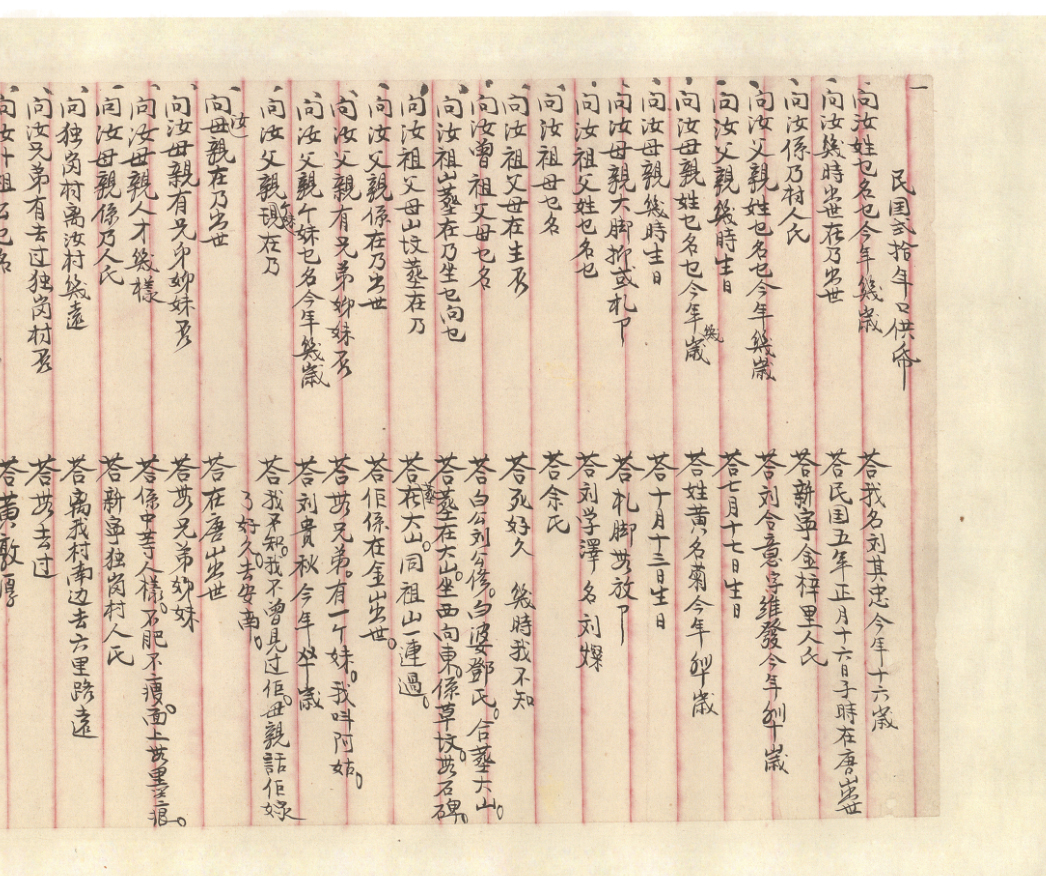 一
民国弍拾年口供帋
问汝姓乜名乜今年幾歲
答我名刘其忠今年十六歲
问汝幾時岀世在乃岀世
答民国五年正月十六日子時在唐岀世
问汝係乃村人氏
答新寧金梓里人氏
问汝父親姓乜名乜今年幾歲
答刘合意字維發今年卌歲
问汝父親幾時生日
答七月十七日生日
问汝母親姓乜名乜今年幾歲
答姓黄名菊今年卌歲
问汝母親幾時生日
答十月十三日生日
问汝母親大脚抑或札卩
答札脚毋放卩
问汝祖父姓乜名乜
答刘学澤 名刘燦
问汝祖母乜名
答余氏
问汝祖父母在生否
答死好久 幾時我不知
问汝曾祖父母乜名
答白公刘公俻。白婆鄧氏。合塟大山。
问汝祖山塟在乃坐乜向乜
答塟在大山。坐西向東。係草坟。毋石碑。
问汝祖父母山坟塟在乃
答塟在大山。同祖山一連過。
问汝父親係在乃岀世
答佢係在金山岀世。
问汝父親有兄弟姊妹否
答毋兄弟。有一个妹。我呌阿姑。
问汝父親个妹乜名今年幾歲
答刘贵秋今年卅歲
问汝父親个妹現在乃
答我不知。我不曾見过佢。母親話佢嫁了好久。去安南。
问汝母親在乃岀世
答在唐山岀世
问汝母親有兄弟姊妹否
答毋兄弟姊妹
问汝母親人才幾樣
答係中等人樣。不肥不瘦。面上毋黑痕。
问汝母親係乃人氏
答新寧独岗村人氏
问独岗村离汝村幾遠
答离我村南边去六里路遠
问汝兄弟有去过独岗村否
答毋去过
问汝外祖公乜名
答黄敦厚